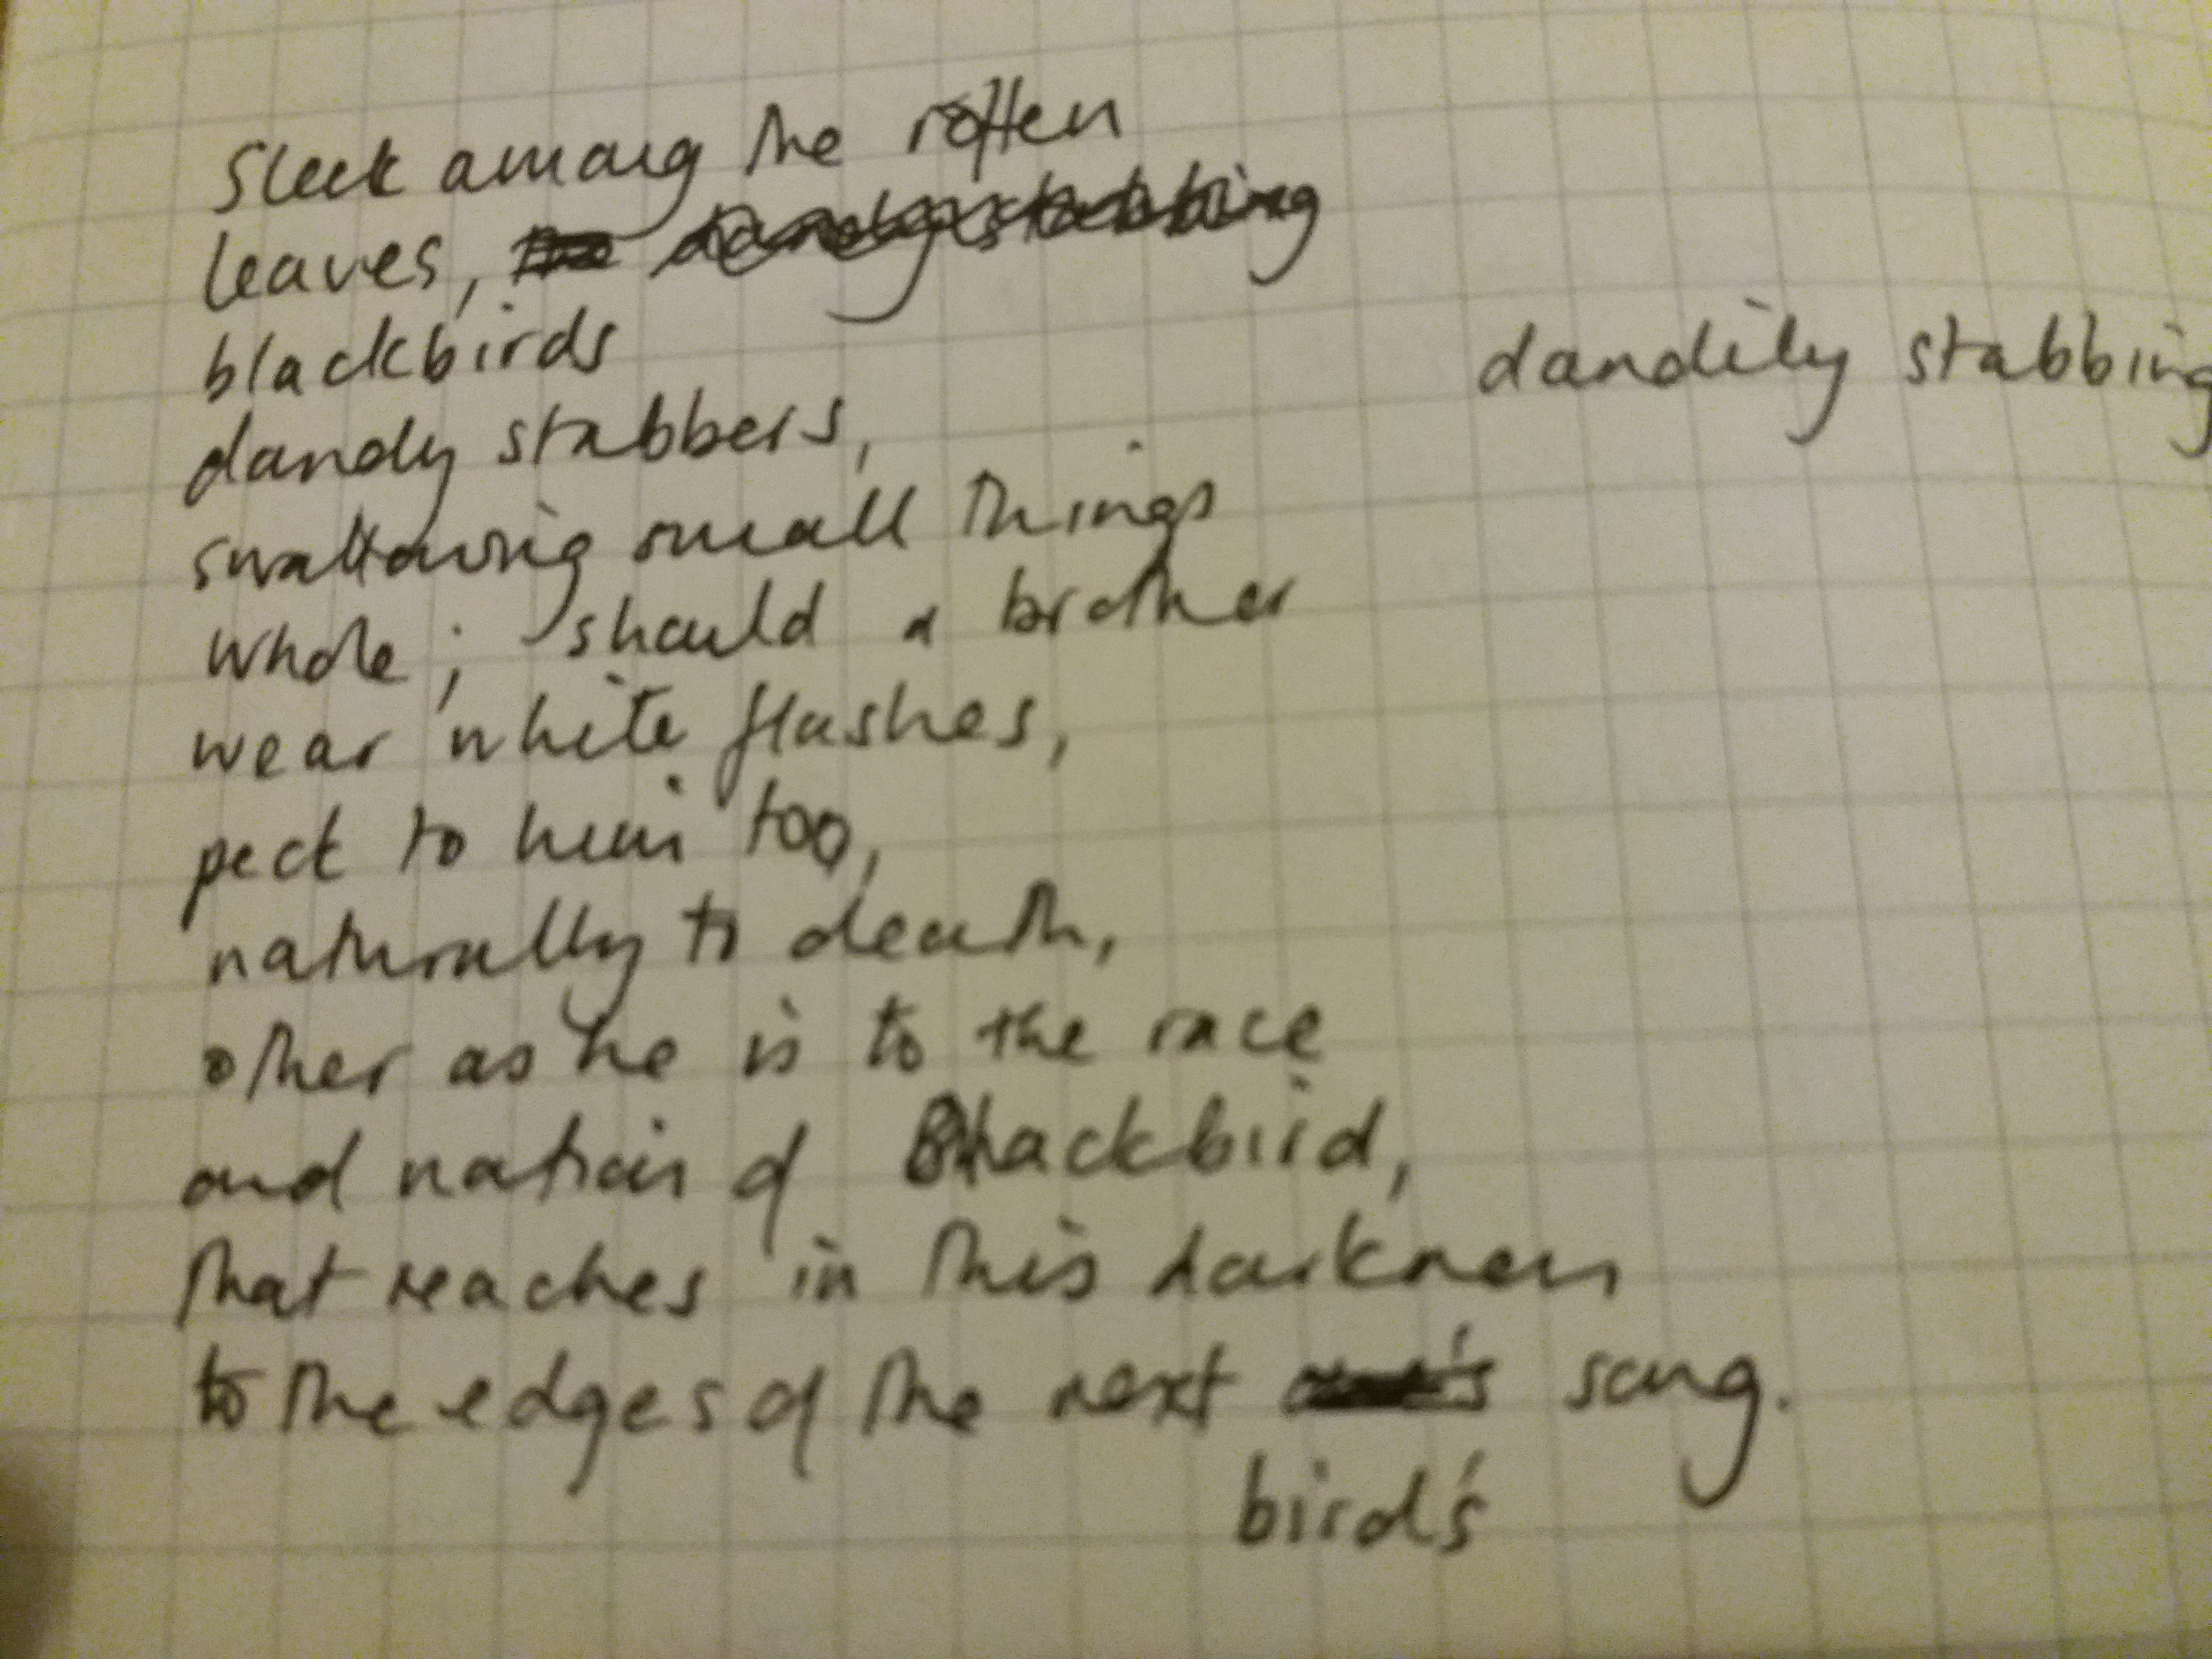 Sleek among the rotten
leaves, dandy stabbing
blackbirds
dandy stabbers,
dandily stabbing
swallowing small things
whole; should a brother
wear white flashes,
peck to him too,
naturally to death,
other as he is to the race
and nation of Blackbird,
that reaches in this darkness
to the edges of the next one's song.
bird's